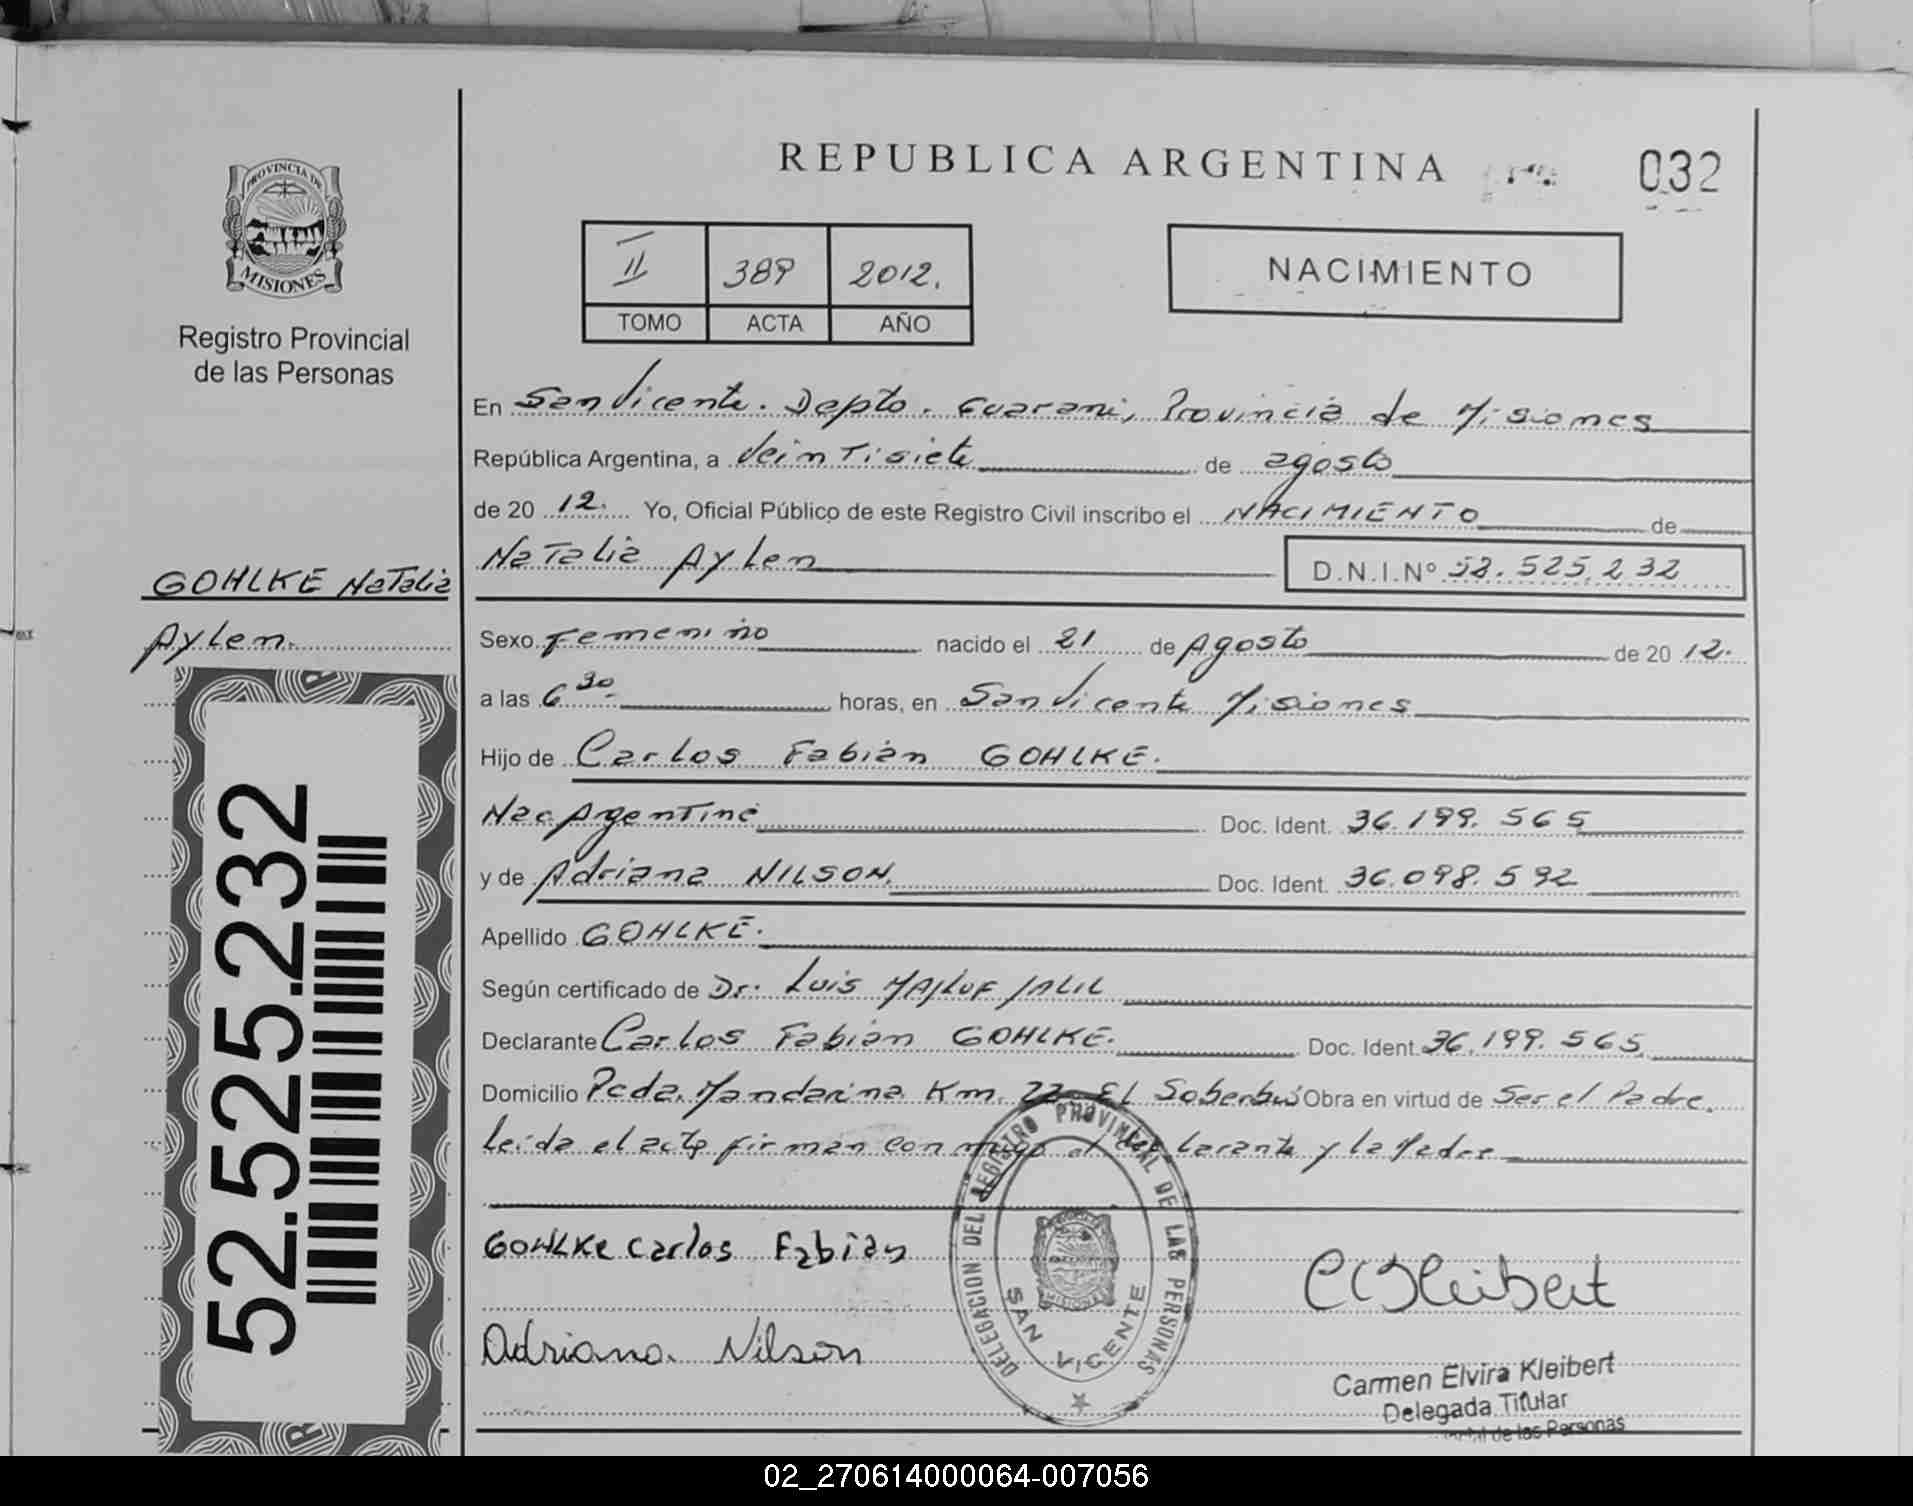 REPUBLICA ARGENTINA
032
PROVINCIA DE
MISIONES
Registro Provincial
de las Personas
II 389 2012.
TOMO ACTA AÑO
NACIMIENTO
En San Vicente. Depto. Guarani, Provincia de Misiones
República Argentina, a Veintisiete de agosto
de 2012. Yo, Oficial Público de este Registro Civil inscribo el NACIMIENTO de
Natalia Aylen D.N.I.Nº 52.525.232
GOHLKE Natalia
Aylen.
Sexo Femenino nacido el 21 de Agosto de 2012.
a las 6 30 horas, en San Vicente Misiones
Hijo de Carlos Fabián GOHLKE.
Nac Argentina Doc. Ident. 36.199.565
y de Adriana NILSON. Doc. Ident. 36.098.592
Apellido GOHLKE.
Según certificado de Dr. Luis MAJLUF JALIL
Declarante Carlos Fabián GOHLKE. Doc. Ident. 36.199.565
Domicilio Pcda. Mandarina Km. 22 El Soberbio Obra en virtud de Ser el Padre.
Leida el acta firman conmigo el declarante y la Madre
52.525.232
GOHLKE Carlos Fabián
Adriana Nilson
DELEGACION DEL REGISTRO PROVINCIAL DE LAS PERSONAS
SAN VICENTE
MISIONES
CEKleibert
Carmen Elvira Kleibert
Delegada Titular
de las Personas
02_270614000064-007056